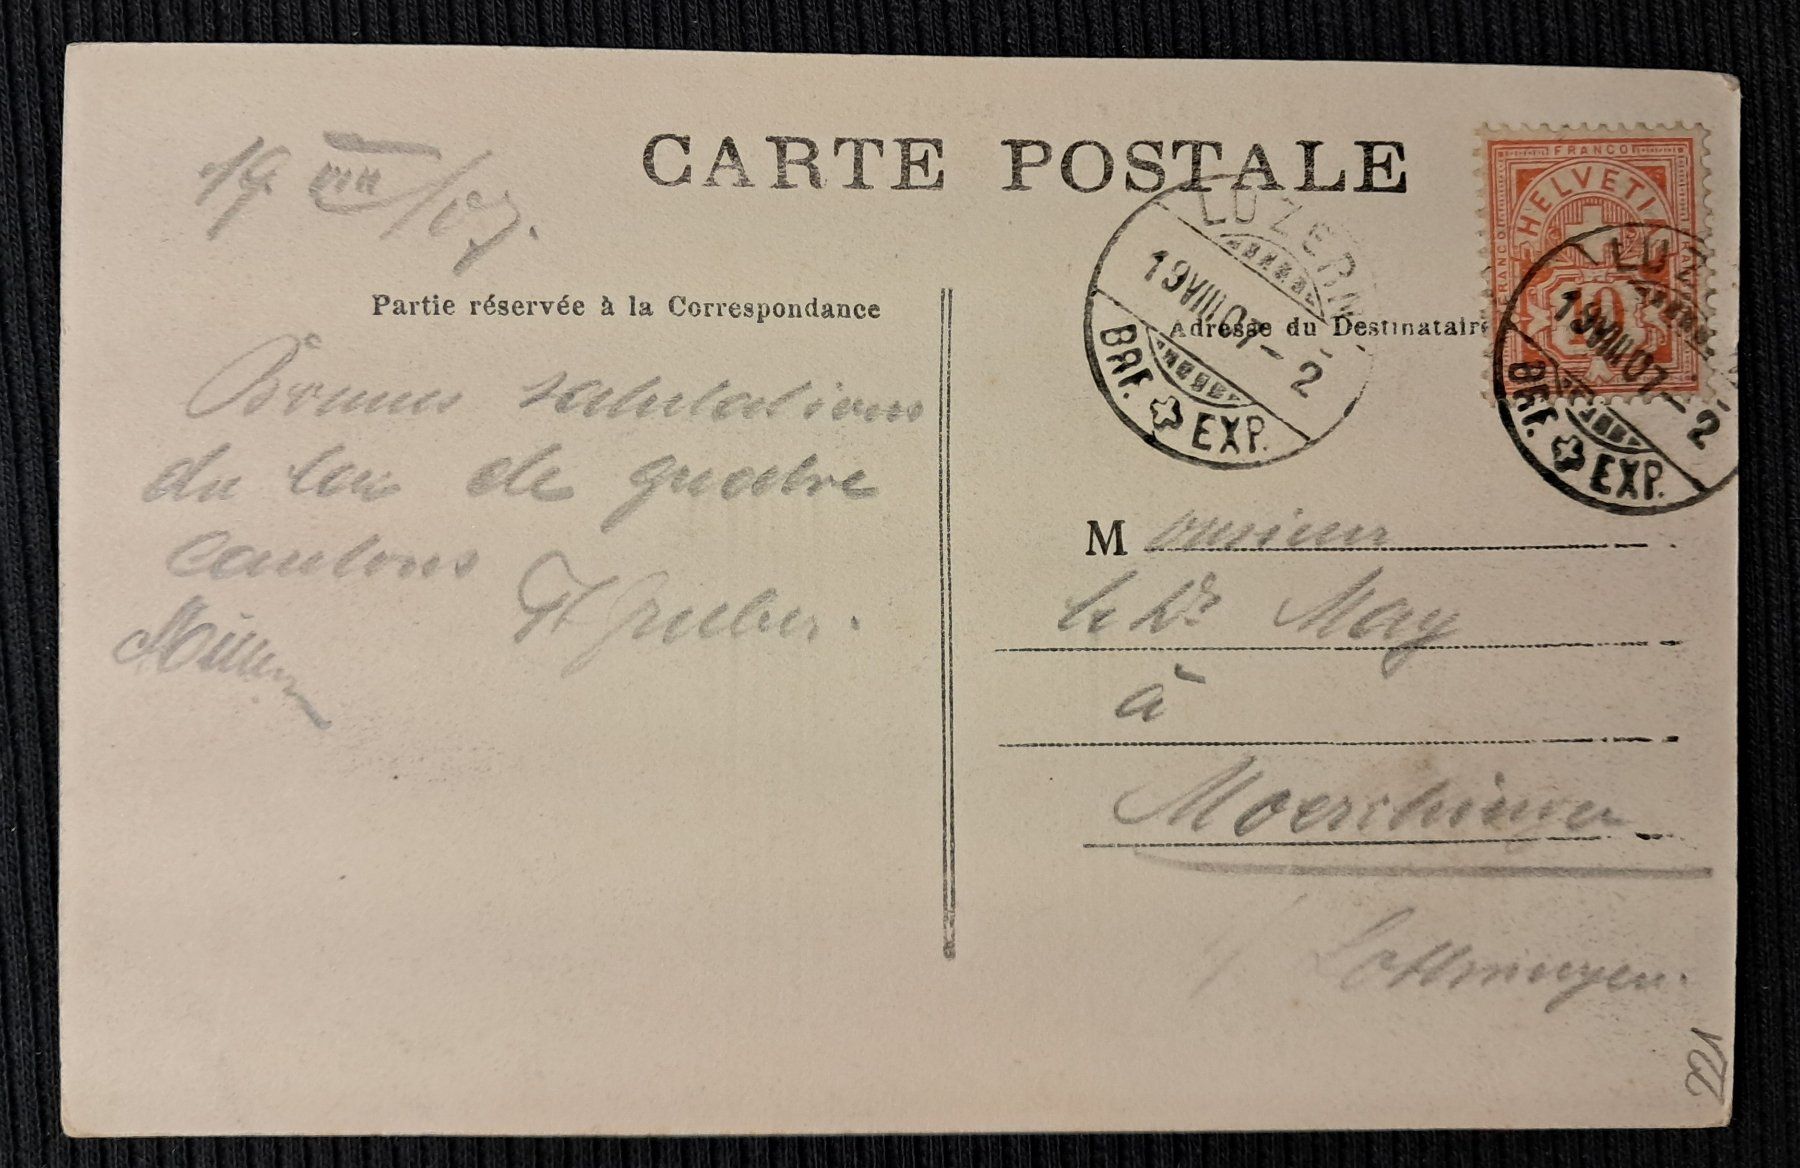 CARTE POSTALE
19. VIII/07.
Partie réservée à la Correspondance
Bonnes salutations
du lac de quatre
cantons
Gruber.
Adresse du Destinataire
FRANCO
HELVETIA
FRANCO
10
LUZERN
19.VIII.07-2
BRF. EXP.
LUZ
19.VIII.07-2
BRF. EXP.
Monsieur
le Dr May
à
Moerchingen
Lothringen.